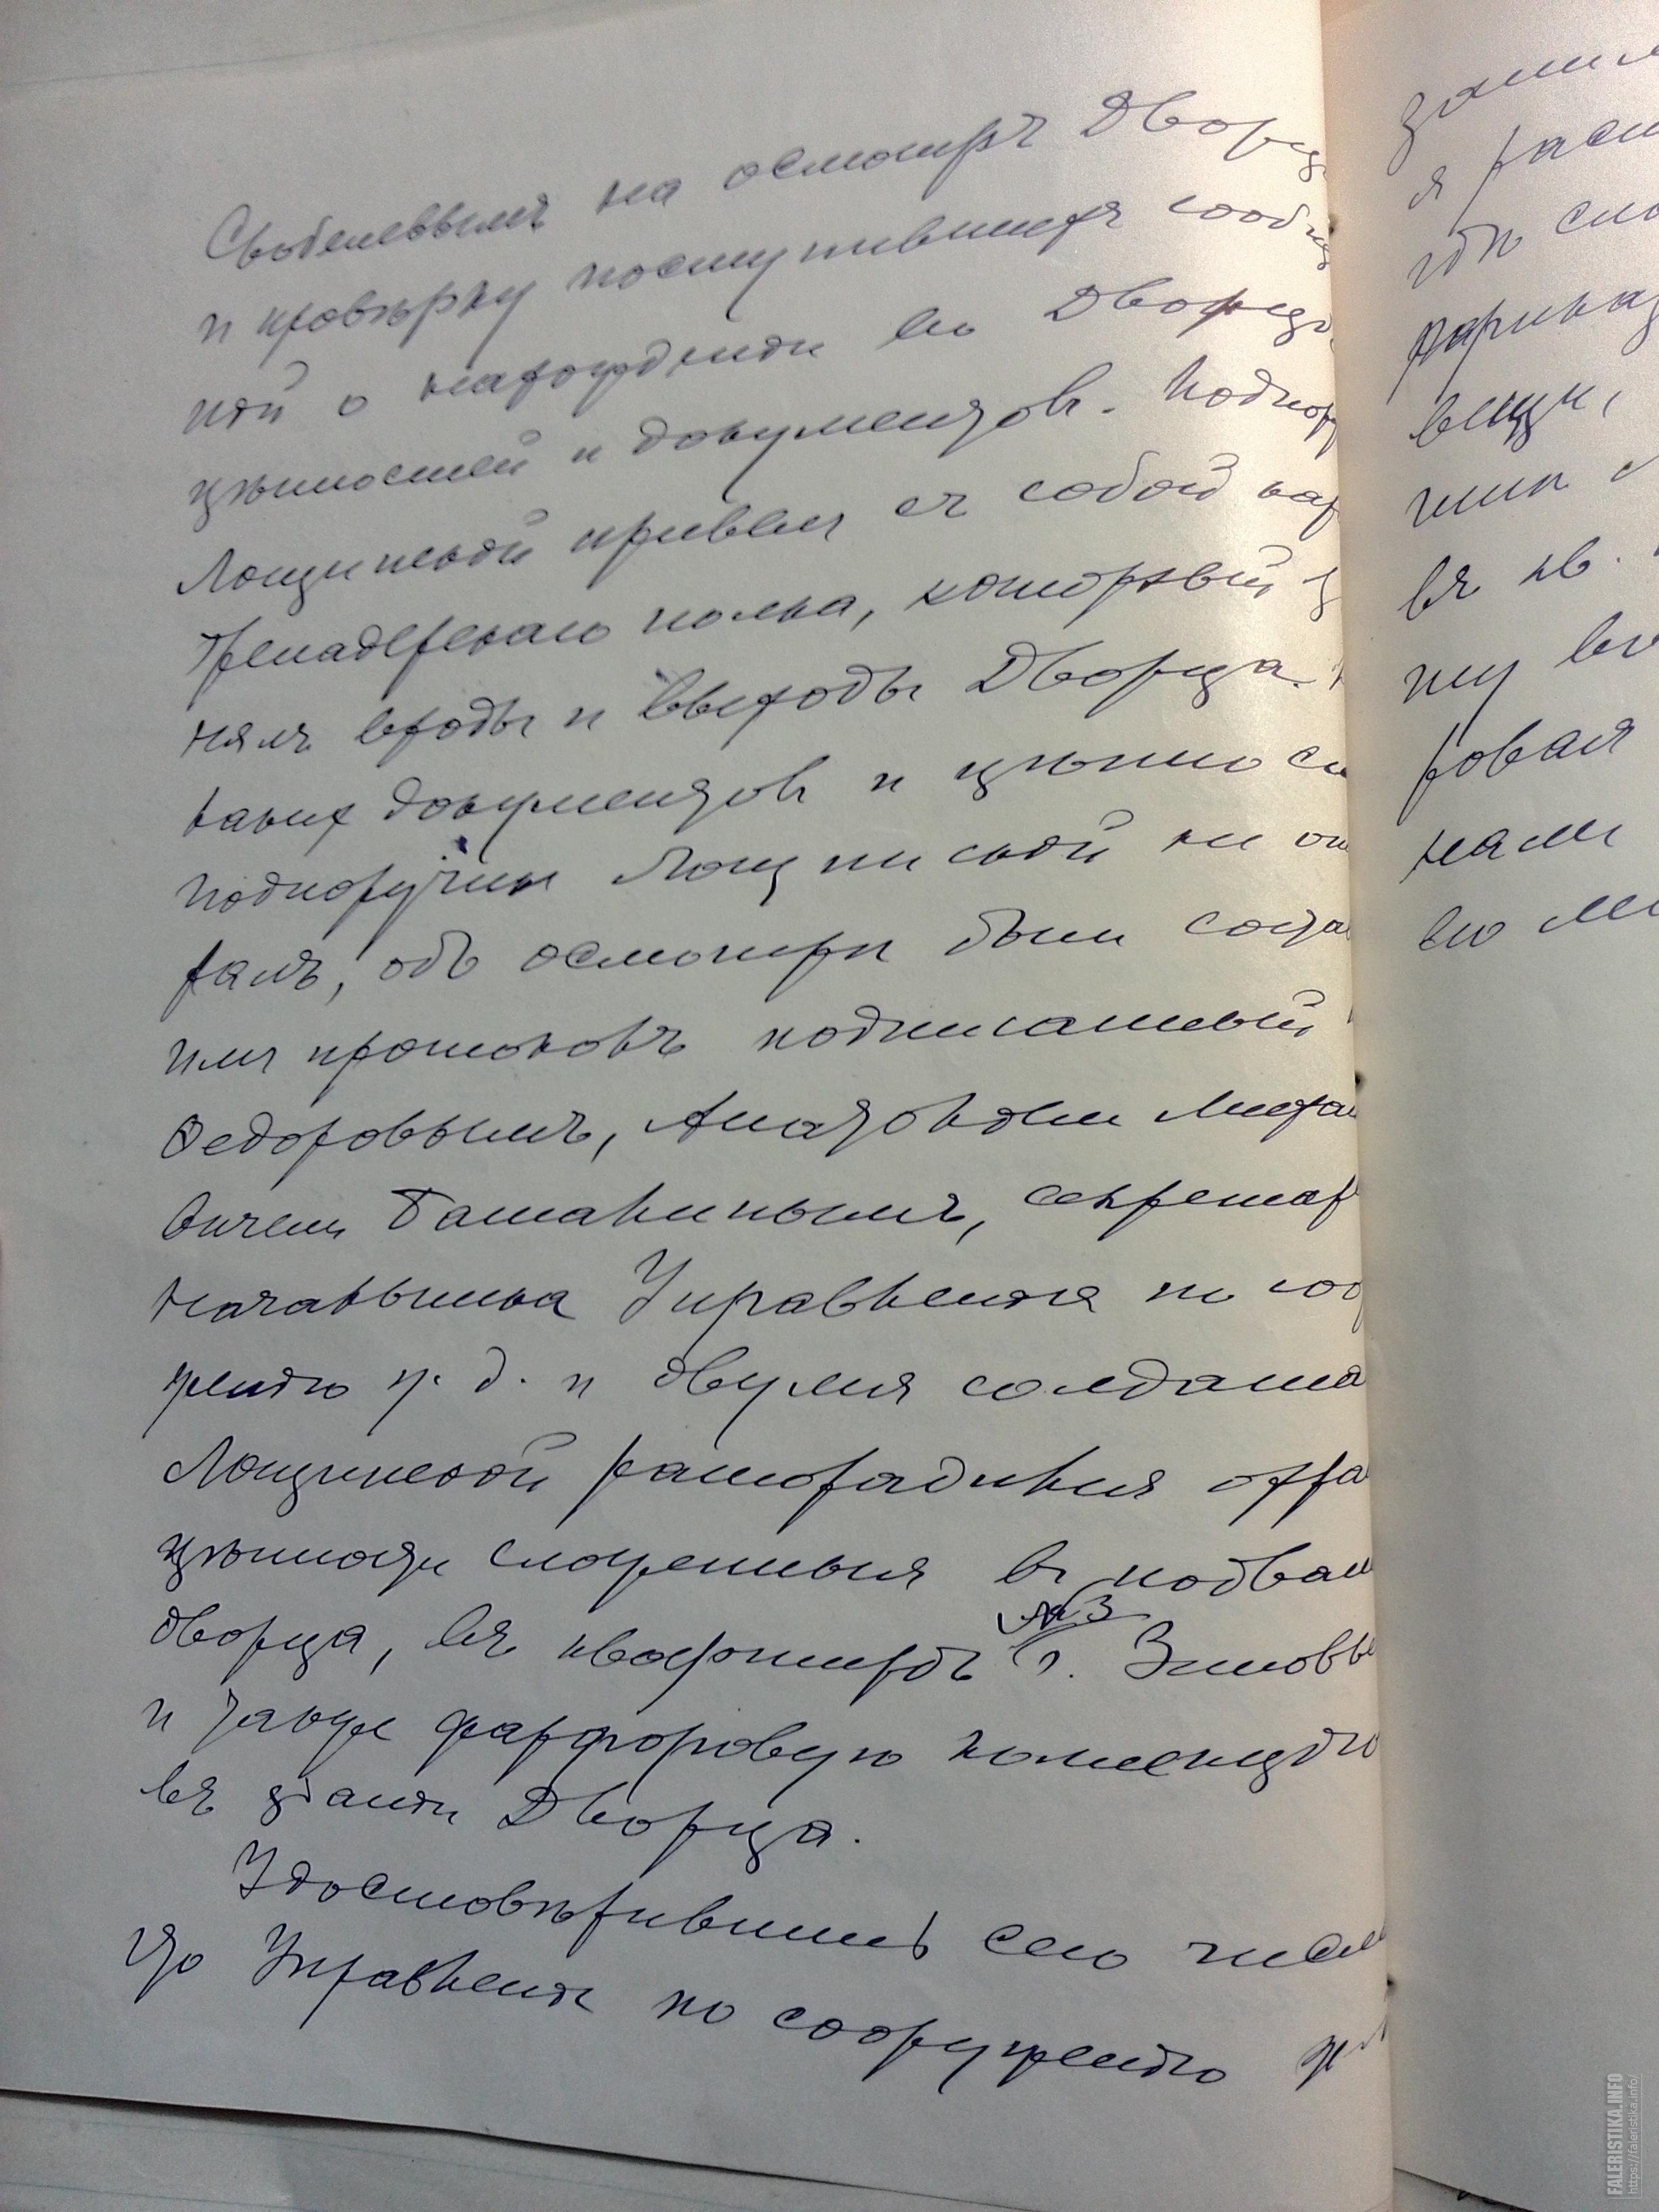 Скобелевымъ на осмотръ Дворц
и провѣрку поступившихъ сооб
ній о нахожденіи во Дворцѣ
цѣнностей и документовъ. Подпор
Лощинскій привелъ съ собой кар
Гренадерскаго полка, который з
нялъ входы и выходы Дворца.
какихъ документовъ и цѣнност
подпоручикъ Лощинскій не от
рылъ, объ осмотрѣ былъ состав
имъ протоколъ подписанный
Федоровымъ, Анатоліемъ Михай
вичемъ Башакинымъ, секретар
Начальника Управленія по соор
женію ж. д. и двумя солдата
Лощинскій распорядился охра
цѣнности сложенныя въ подвал
дворца, въ квартирѣ №3 г. Зиновье
и также фарфоровую коллекцію
въ зданіи Дворца.
Удостовѣрившись сего числ
что Управленіе по сооруженію ж
я расп
вещи,
въ кв.
ровал
нами